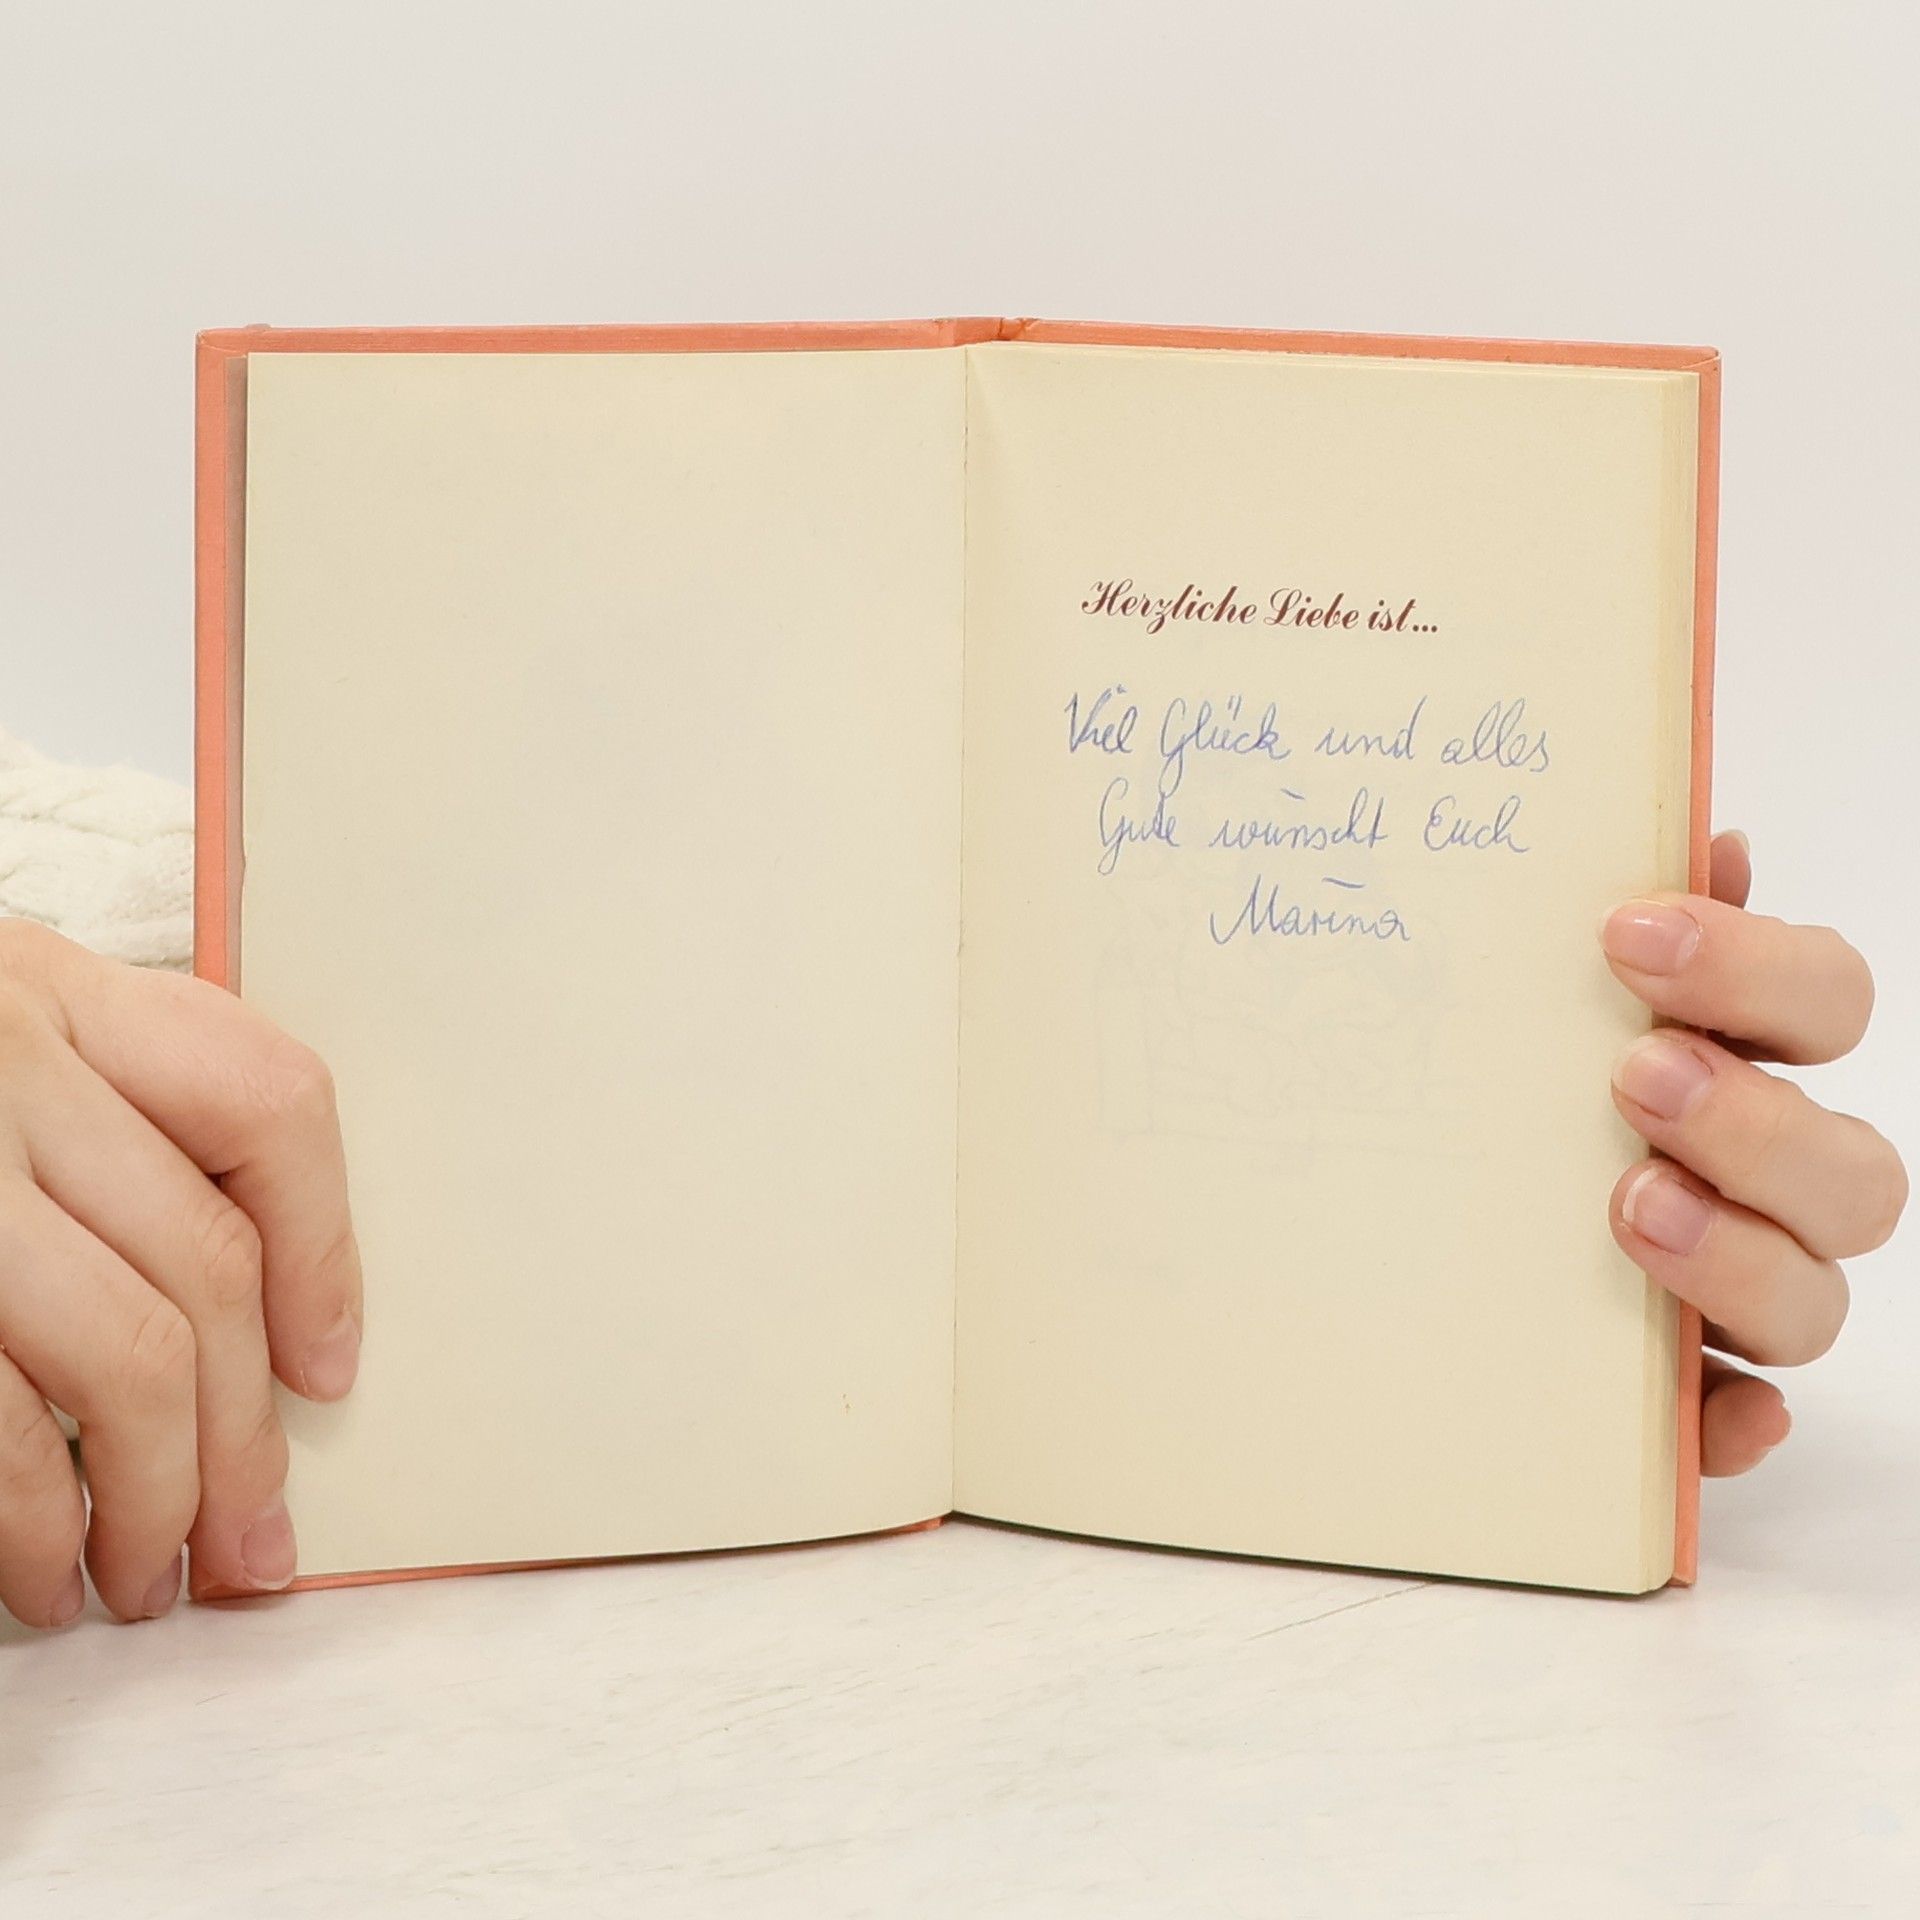 Herzliche Liebe ist...
Viel Glück und alles
Gute wünscht Euch
Marina